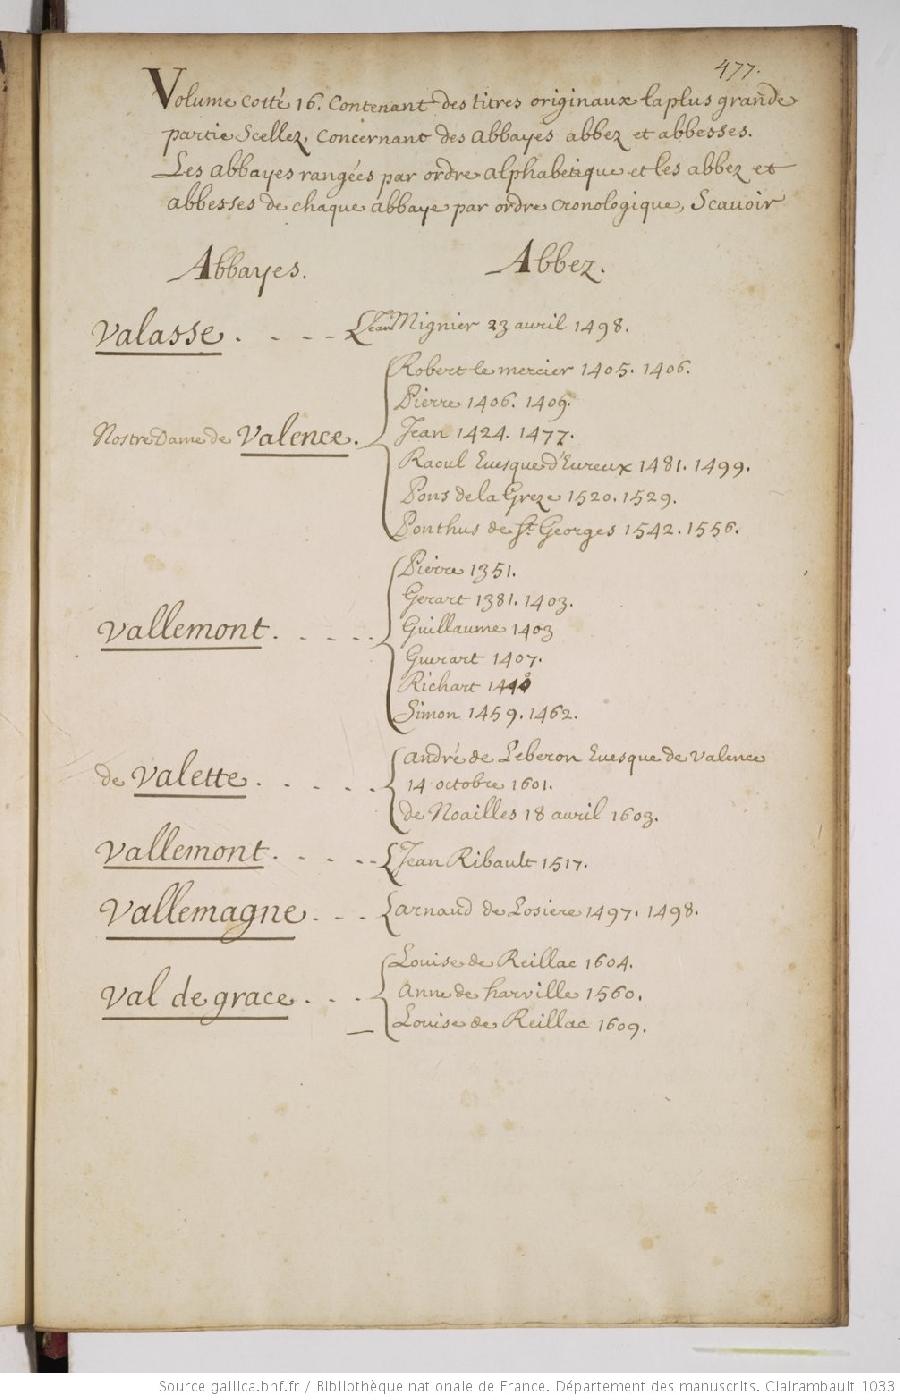 477.
Volume cotté 16. Contenant des titres originaux la plus grande
partie Scellez, Concernant des abbayes abbez et abbesses.
Les abbayes rangées par ordre alphabetique et les abbez et
abbesses de chaque abbaye par ordre cronologique, Scauoir
Abbayes. Abbez.
Valasse. Jean Mignier 23 auril 1498.
Nostre Dame de Valence.
Robert le mercier 1405. 1406.
Pierre 1406. 1409.
Jean 1424. 1477.
Raoul Euesque d'Eureux 1481. 1499.
Pons de la Greze 1520. 1529.
Ponthus de St. Georges 1542. 1556.
Vallemont.
Pierre 1351.
Gerart 1381. 1403.
Guillaume 1403
Guerart 1407.
Richart
Simon 1459. 1462.
de Valette.
André de Leberon Euesque de Valence
14 octobre 1601.
de Noailles 18 auril 1603.
Vallemont. Jean Ribault 1517.
Vallemagne. arnaud de Losiere 1497. 1498.
Val de grace.
Louise de Reillac 1604.
Anne de harville 1560.
Louise de Reillac 1609.
Source gallica.bnf.fr / Bibliothèque nationale de France. Département des manuscrits. Clairambault 1033